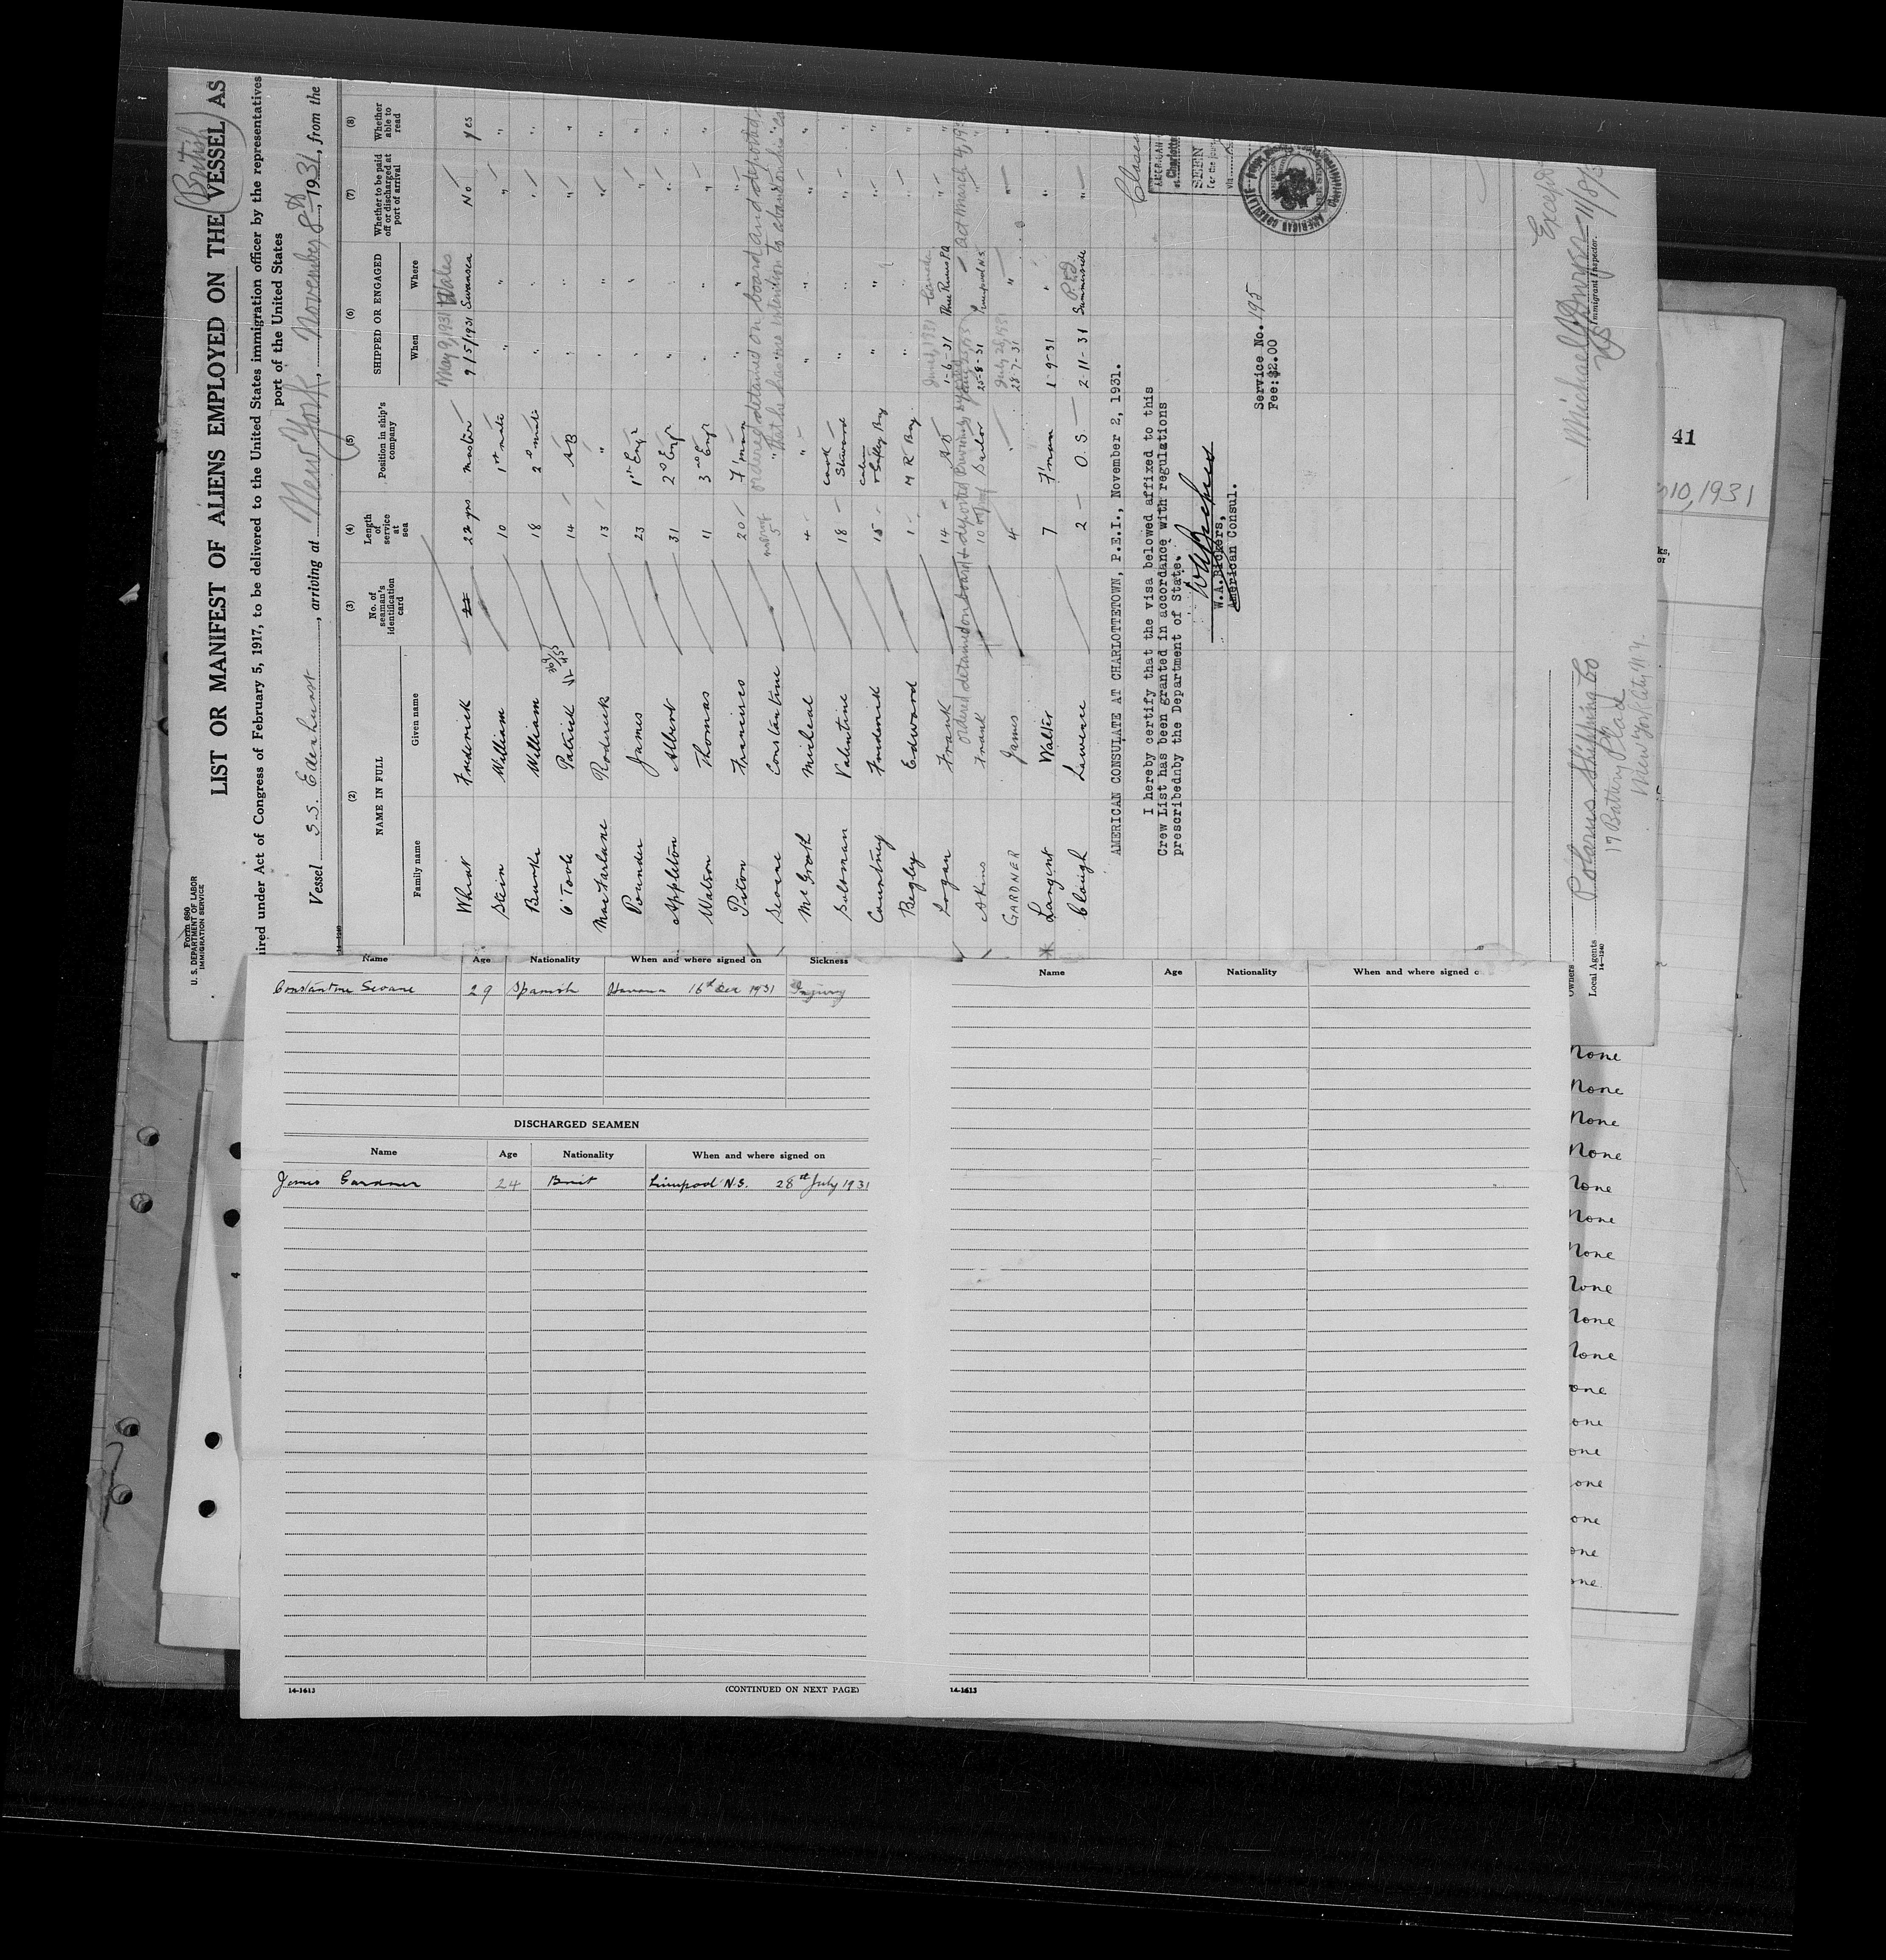 Form 680
U. S. DEPARTMENT OF LABOR
IMMIGRATION SERVICE
(British)
LIST OR MANIFEST OF ALIENS EMPLOYED ON THE VESSEL AS
ired under Act of Congress of February 5, 1917, to be delivered to the United States immigration officer by the representatives
port of the United States
Vessel S.S. Edenhurst, arriving at New York, November 8th, 1931, from the
14-1240
(2) (3) (4) (5) (6) (7) (8)
NAME IN FULL
No. of seaman's identification card
Length of service at sea
Position in ship's company
SHIPPED OR ENGAGED
Whether to be paid off or discharged at port of arrival
Whether able to read
Family name Given name When Where
May 9, 1931 Wales
Frederick 22 yrs master 9/5/1931 Swansea No yes
Stein William 10 1st mate " " " "
Burke William 18 2nd mate " " " "
O'Toole Patrick 14 AB " " " "
MacFarlane Roderick 13 " " " " "
Pounder James 23 1st Engr " " " "
Appleton Albert 31 2nd Engr " " " "
Watson Thomas 11 3rd Engr " " " "
Piton Francisco 20 F'man " " " "
ordered detained on board and deported
Seoane Constantine 5 " " " " "
that he has intention to abandon his
McGrath Micheal 4 " " " " "
Sulsman Valentine 18 cook Steward " " " "
Courtney Frederick 15 cabin & Galley Boy " " " "
Begley Edward 1 M R Boy " " " "
June 1, 1931 Canada
Logan Frank 14 AB 1-6-31 Three Rivers P.Q. " "
ordered detained on board & deported
act March 4, 19
Akins Frank 10 Sailor 25-8-31 Liverpool N.S. " "
July 28, 1931
GARDNER James 4 " 28-7-31 " " "
Walter 7 F'man 1-9-31 " " "
P.E.I.
Clough Lawrence 2 O.S. 2-11-31 Summerside " "
AMERICAN CONSULATE AT CHARLOTTETOWN, P.E.I., November 2, 1931.
I hereby certify that the visa belowed affixed to this
Crew List has been granted in accordance with regulations
prescribednby the Department of State.
W.A.Bickers,
American Consul.
Service No. 195
Fee:$2.00
AMERICAN
at Charlotte
SEEN
For the jour
via
AMERICAN CONSULATE
Except
Michael
11/8/3
Immigrant Inspector.
Owners
Local Agents
14-1240
Polarus Shipping Co
17 Battery Place
New York City N.Y.
41
10, 1931
Name Age Nationality When and where signed on Sickness
Constantine Seoane 29 Spanish Havana 16th Dec 1931 Injury
DISCHARGED SEAMEN
Name Age Nationality When and where signed on
James Gardner 24 Brit Liverpool N.S. 28th July 1931
14-1613
(CONTINUED ON NEXT PAGE)
Name Age Nationality When and where signed o
14-1613
None
None
None
None
None
None
None
None
None
None
one
one
one
one
one
one
one
4